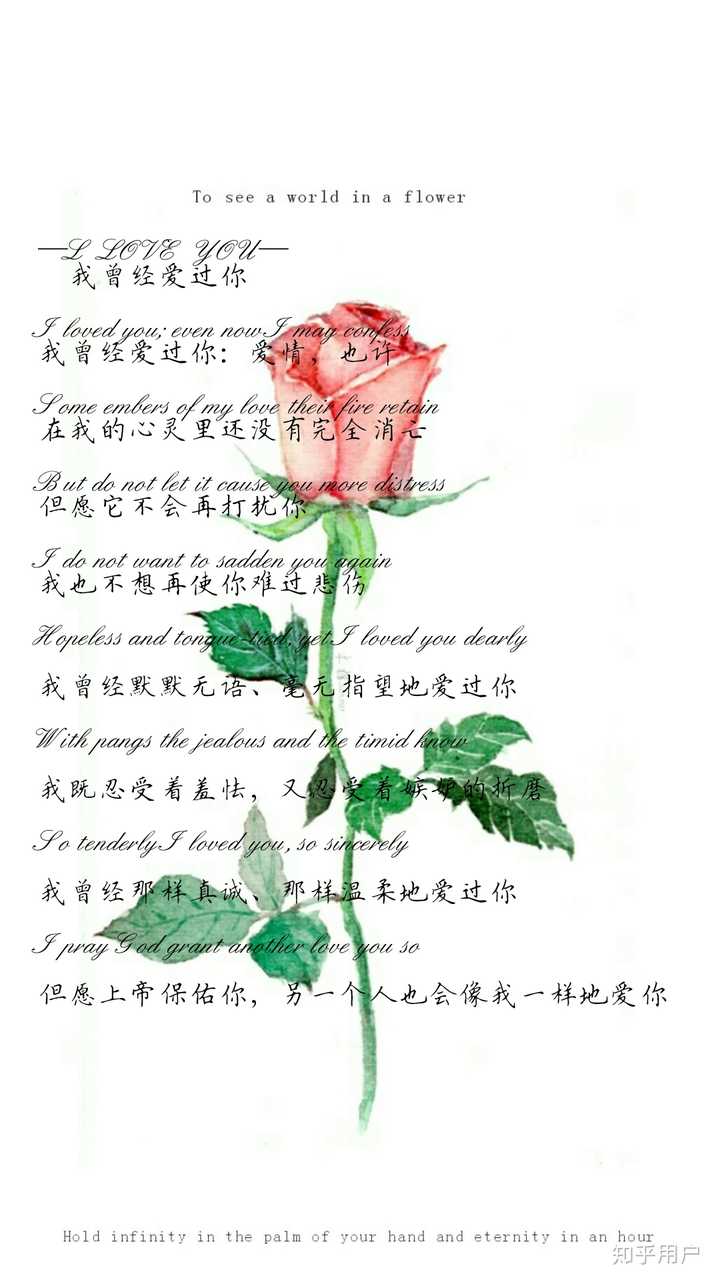 To see a world in a flower
—I LOVE YOU—
我曾经爱过你
I loved you; even now I may confess
我曾经爱过你：爱情，也许
Some embers of my love their fire retain
在我的心灵里还没有完全消亡
But do not let it cause you more distress
但愿它不会再打扰你
I do not want to sadden you again
我也不想再使你难过悲伤
Hopeless and tongue-tied, yet I loved you dearly
我曾经默默无语、毫无指望地爱过你
With pangs the jealous and the timid know
我既忍受着羞怯，又忍受着嫉妒的折磨
So tenderly I loved you, so sincerely
我曾经那样真诚、那样温柔地爱过你
I pray God grant another love you so
但愿上帝保佑你，另一个人也会像我一样地爱你
Hold infinity in the palm of your hand and eternity in an hour
知乎用户